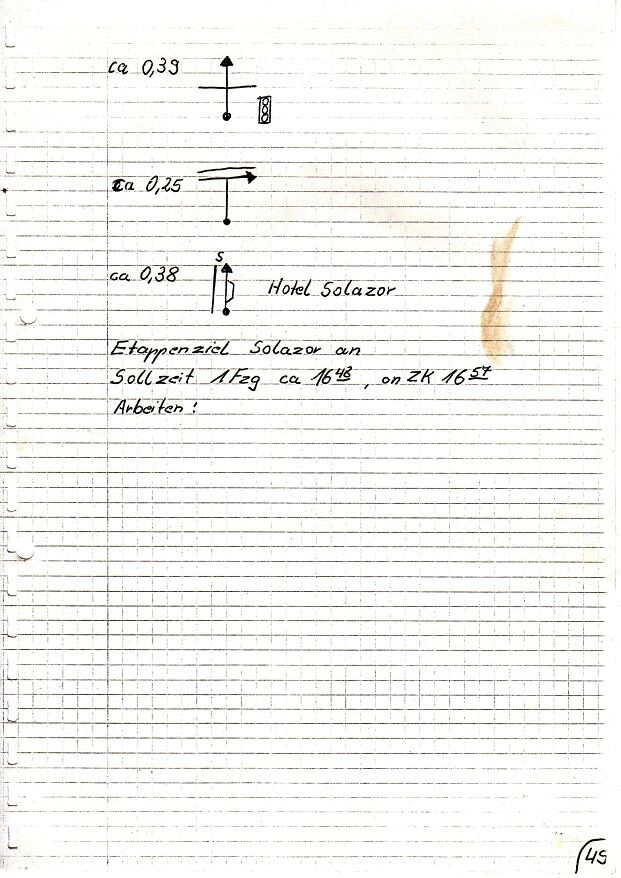 ca 0,39
ca 0,25
S
ca 0,38
Hotel Solazor
Etappenziel Solazor an
Sollzeit 1 Fzg ca 16 48, an ZK 16 57
Arbeiten:
49